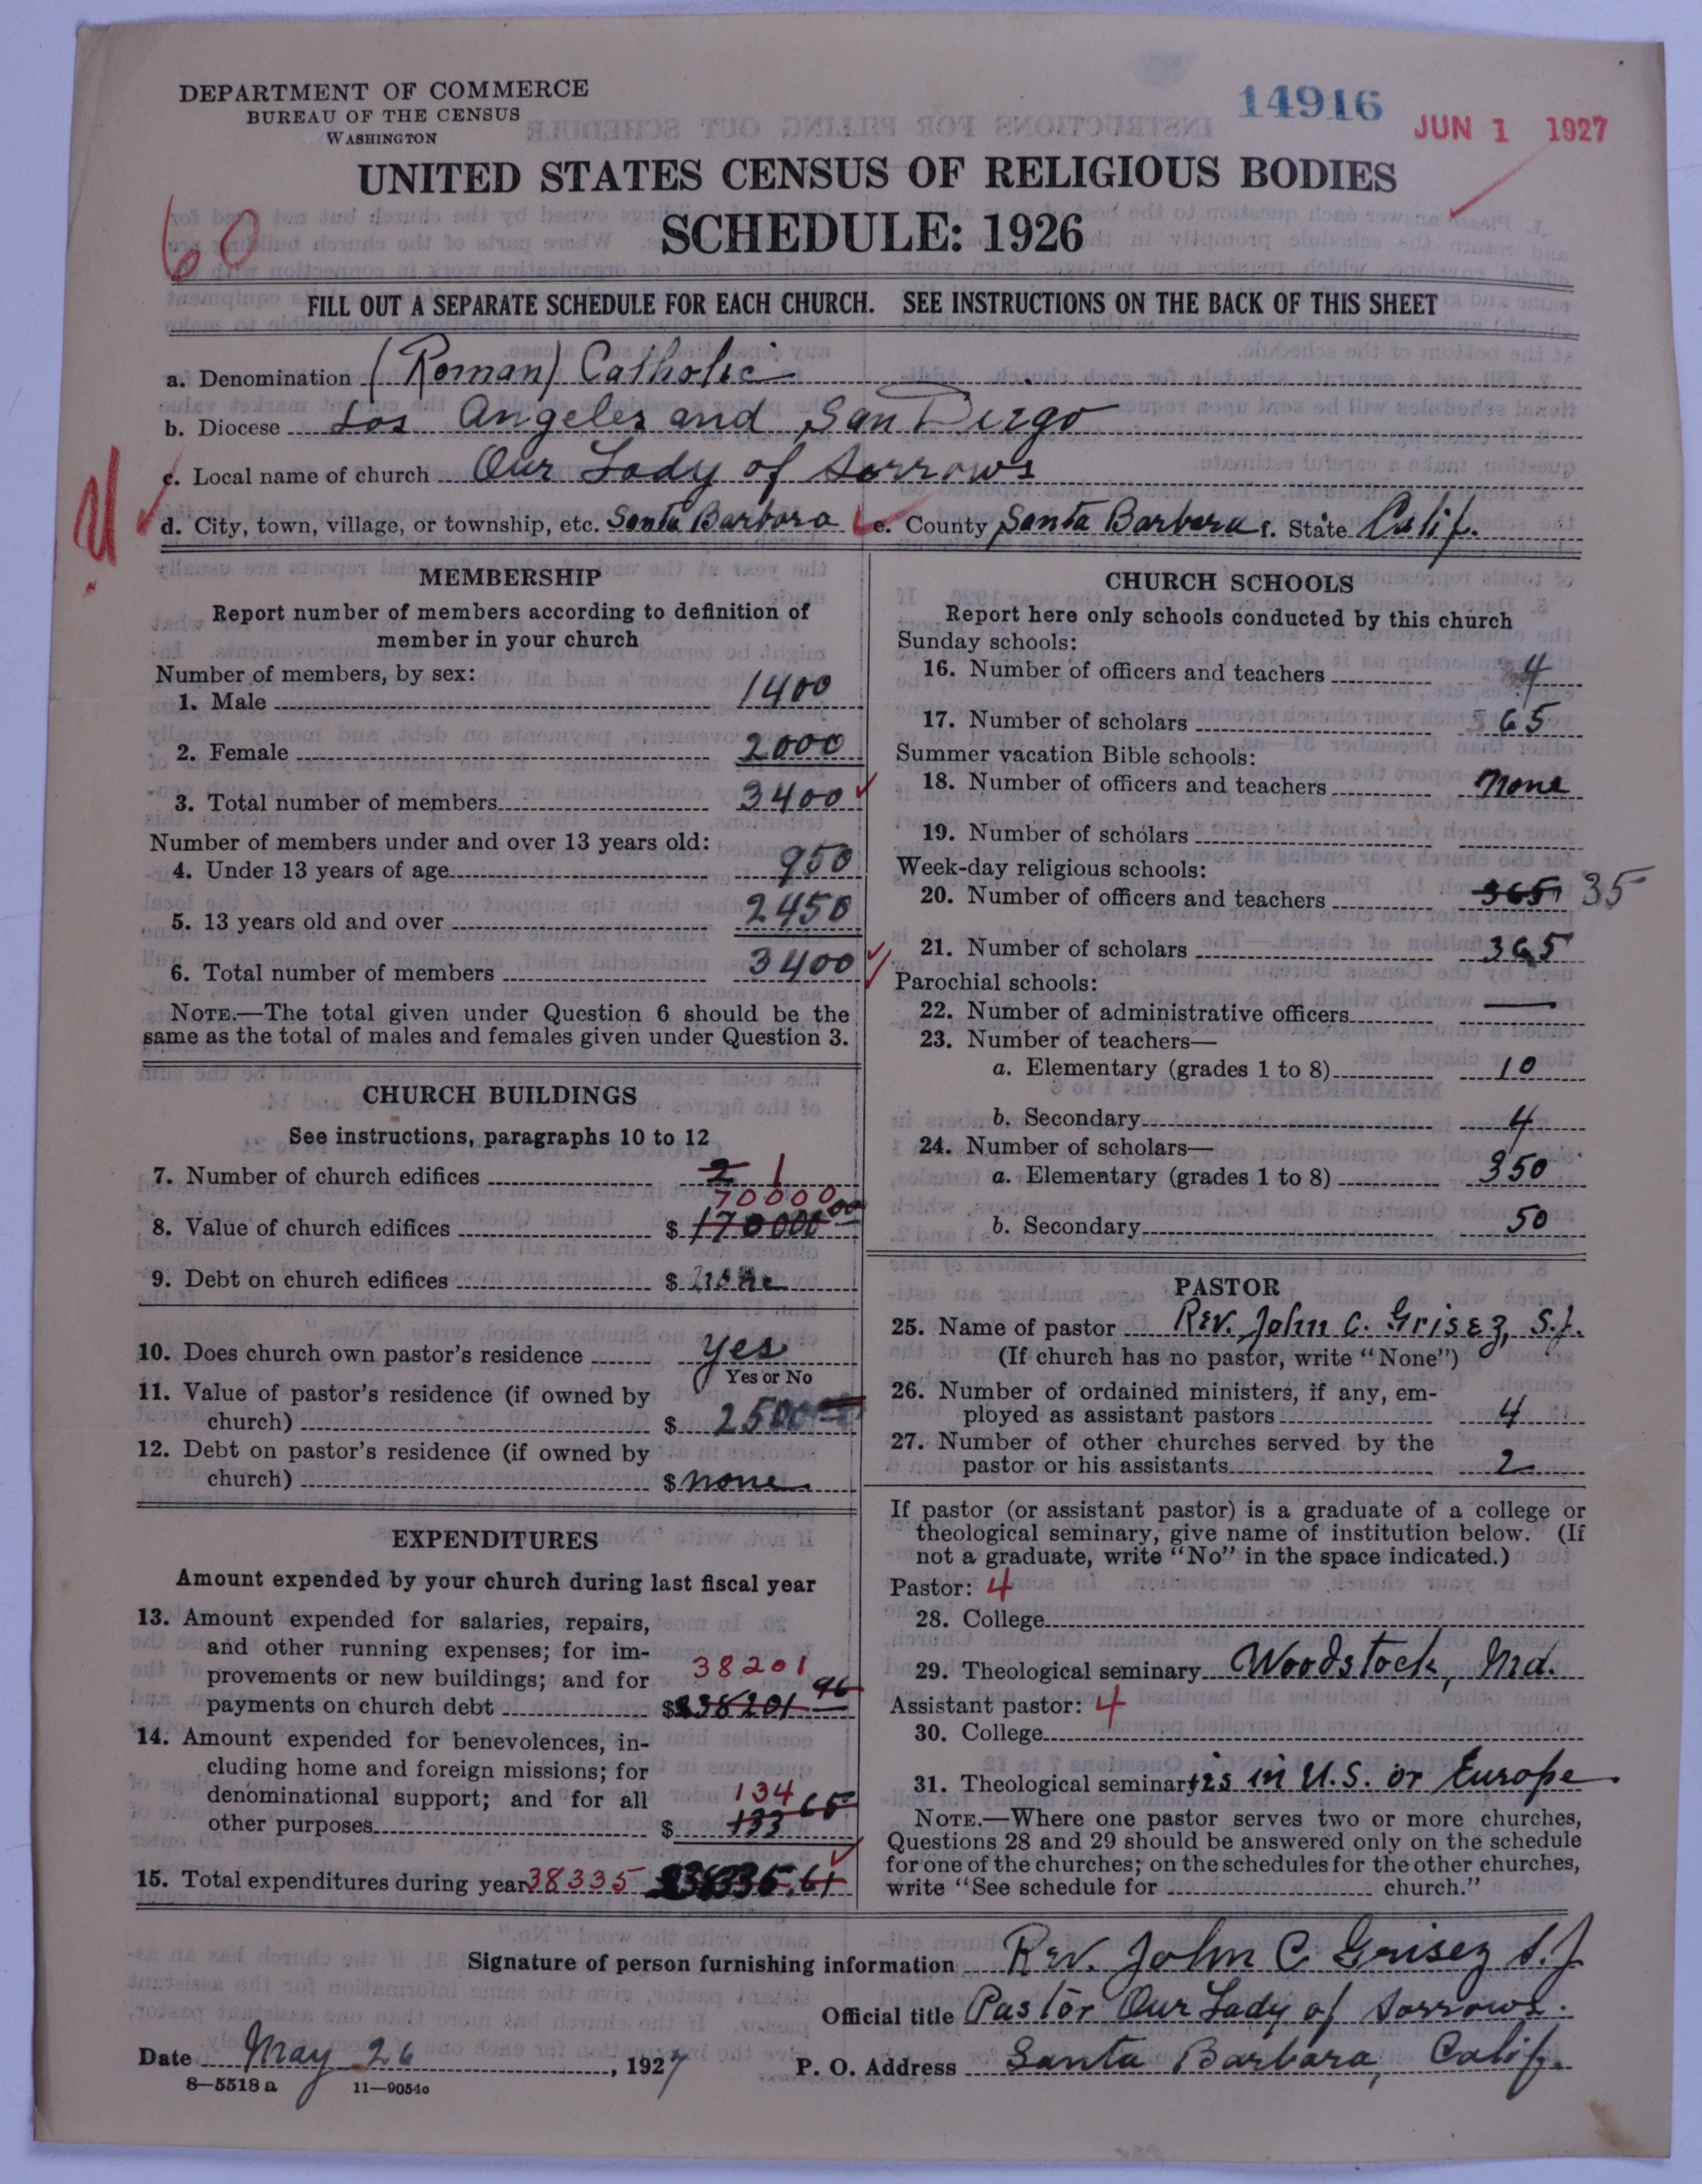 DEPARTMENT OF COMMERCE
BUREAU OF THE CENSUS
WASHINGTON
14916
JUN 1 1927
UNITED STATES CENSUS OF RELIGIOUS BODIES
SCHEDULE: 1926
60
FILL OUT A SEPARATE SCHEDULE FOR EACH CHURCH. SEE INSTRUCTIONS ON THE BACK OF THIS SHEET
a. Denomination (Roman) Catholic
b. Diocese Los Angeles and San Diego
c. Local name of church Our Lady of Sorrows
d. City, town, village, or township, etc. Santa Barbara e. County Santa Barbara f. State Calif.
MEMBERSHIP
Report number of members according to definition of
member in your church
Number of members, by sex:
1. Male 1400
2. Female 2000
3. Total number of members 3400
Number of members under and over 13 years old:
4. Under 13 years of age 950
5. 13 years old and over 2450
6. Total number of members 3400
NOTE.—The total given under Question 6 should be the
same as the total of males and females given under Question 3.
CHURCH BUILDINGS
See instructions, paragraphs 10 to 12
7. Number of church edifices 2 1
70000
8. Value of church edifices $ 170000 00
9. Debt on church edifices $ none
10. Does church own pastor's residence yes
Yes or No
11. Value of pastor's residence (if owned by
church) $ 2500
12. Debt on pastor's residence (if owned by
church) $ none
EXPENDITURES
Amount expended by your church during last fiscal year
13. Amount expended for salaries, repairs,
and other running expenses; for im-
provements or new buildings; and for 38201
payments on church debt $ 38201 96
14. Amount expended for benevolences, in-
cluding home and foreign missions; for
denominational support; and for all 134
other purposes $ 133 65
15. Total expenditures during year 38335 38335.61
CHURCH SCHOOLS
Report here only schools conducted by this church
Sunday schools:
16. Number of officers and teachers 4
17. Number of scholars 65
Summer vacation Bible schools:
18. Number of officers and teachers None
19. Number of scholars
Week-day religious schools:
20. Number of officers and teachers 365 35
21. Number of scholars 365
Parochial schools:
22. Number of administrative officers —
23. Number of teachers—
a. Elementary (grades 1 to 8) 10
b. Secondary 4
24. Number of scholars—
a. Elementary (grades 1 to 8) 350
b. Secondary 50
PASTOR
25. Name of pastor Rev. John C. Grisez, S.J.
(If church has no pastor, write "None")
26. Number of ordained ministers, if any, em-
ployed as assistant pastors 4
27. Number of other churches served by the
pastor or his assistants 2
If pastor (or assistant pastor) is a graduate of a college or
theological seminary, give name of institution below. (If
not a graduate, write "No" in the space indicated.)
Pastor: 4
28. College
29. Theological seminary Woodstock, Md.
Assistant pastor: 4
30. College
31. Theological seminaries in U.S. or Europe
NOTE.—Where one pastor serves two or more churches,
Questions 28 and 29 should be answered only on the schedule
for one of the churches; on the schedules for the other churches,
write "See schedule for church."
Signature of person furnishing information Rev. John C. Grisez S.J.
Official title Pastor Our Lady of Sorrows.
Date May 26, 1927 P. O. Address Santa Barbara, Calif.
8—5518 a 11—9054a